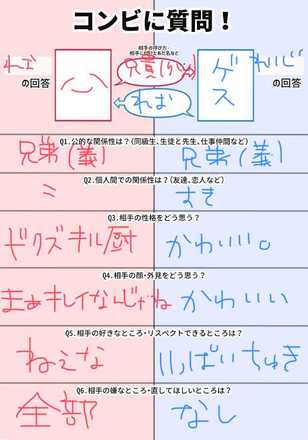 コンビに質問！
相手の呼び方
相手に付けたあだ名など
れお の回答
兄貴(仮)
れお
ゲス
れいじ の回答
Q1.公的な関係性は？(同級生、生徒と先生、仕事仲間など)
兄弟(義) 兄弟(義)
Q2.個人間での関係性は？(友達、恋人など)
ミ すき
Q3.相手の性格をどう思う？
ドクズキル厨 かわいい。
Q4.相手の顔・外見をどう思う？
まぁキレイなんじゃね かわいい
Q5.相手の好きなところ・リスペクトできるところは？
ねぇな いっぱいちゅき
Q6.相手の嫌なところ・直してほしいところは？
全部 なし